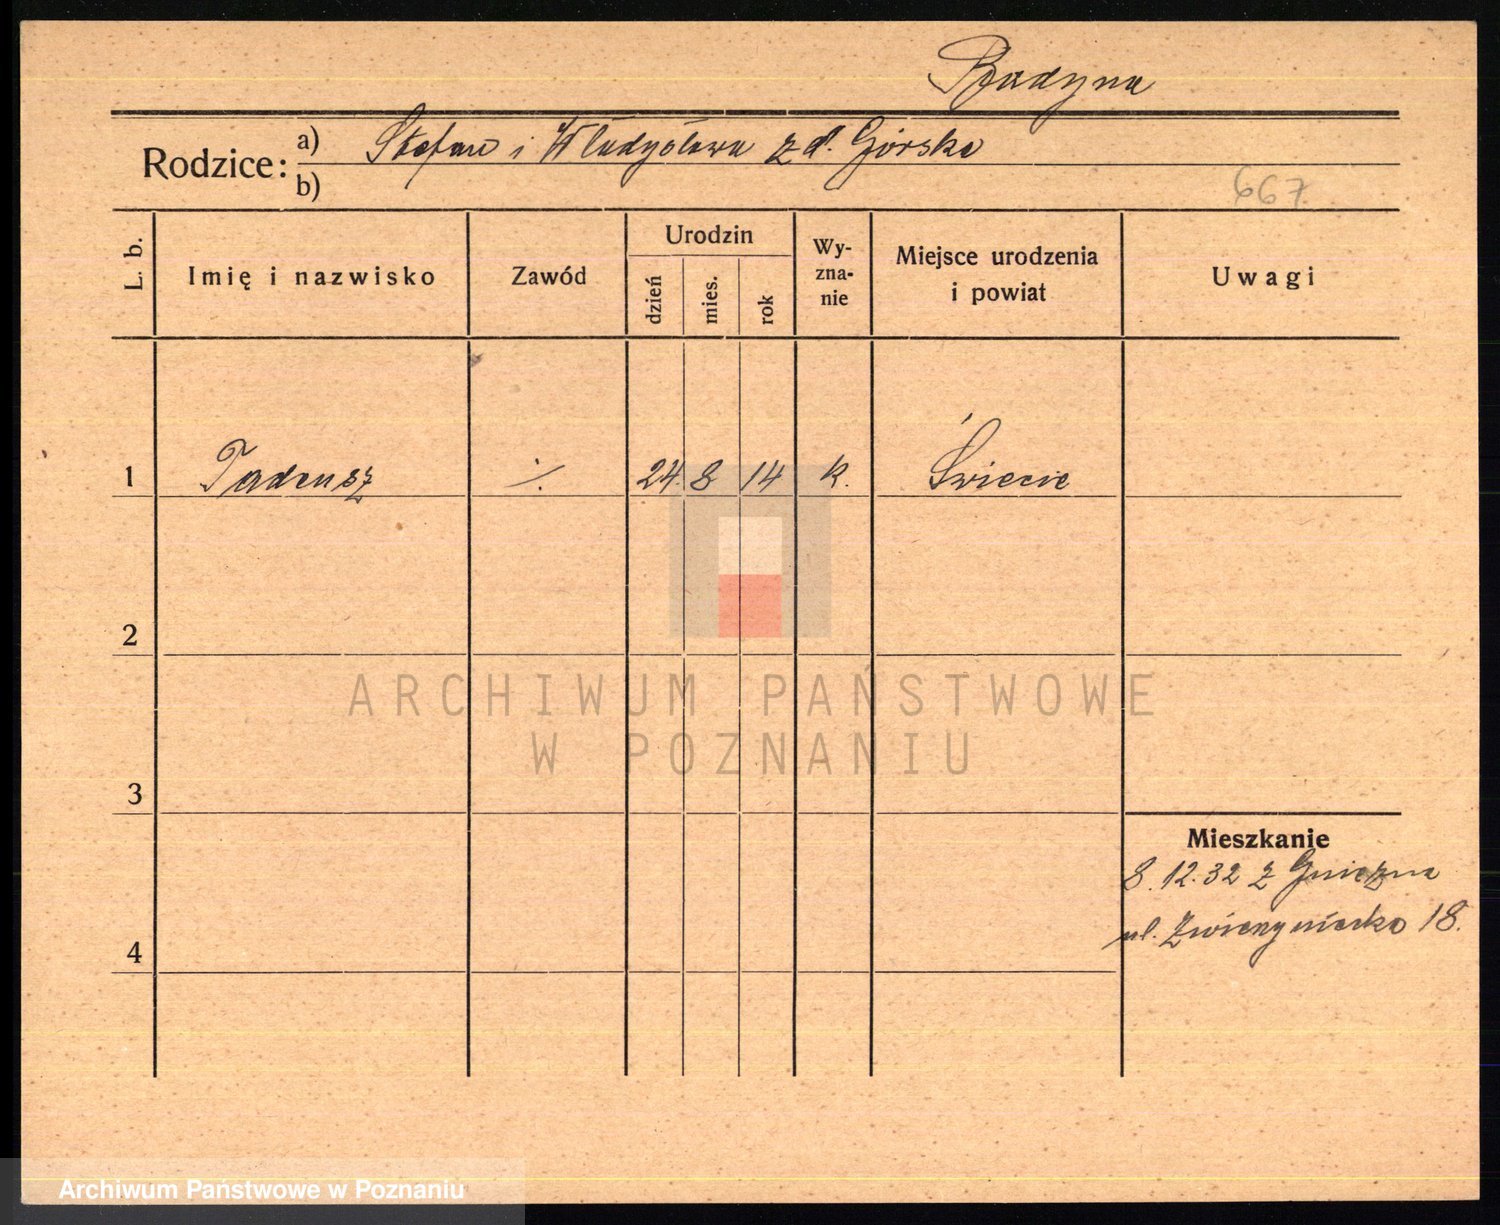 Radyna
Rodzice: a) Stefan i Władysława z d. Górska
b)
667
L. b.
Imię i nazwisko
Zawód
Urodzin
dzień
mies.
rok
Wy-
zna-
nie
Miejsce urodzenia
i powiat
Uwagi
1 Tadeusz ./. 24. 8 14 k. Świecie
2
ARCHIWUM PAŃSTWOWE
W POZNANIU
3
Mieszkanie
8.12.32 z Gniezna
ul. 18.
4
Archiwum Państwowe w Poznaniu